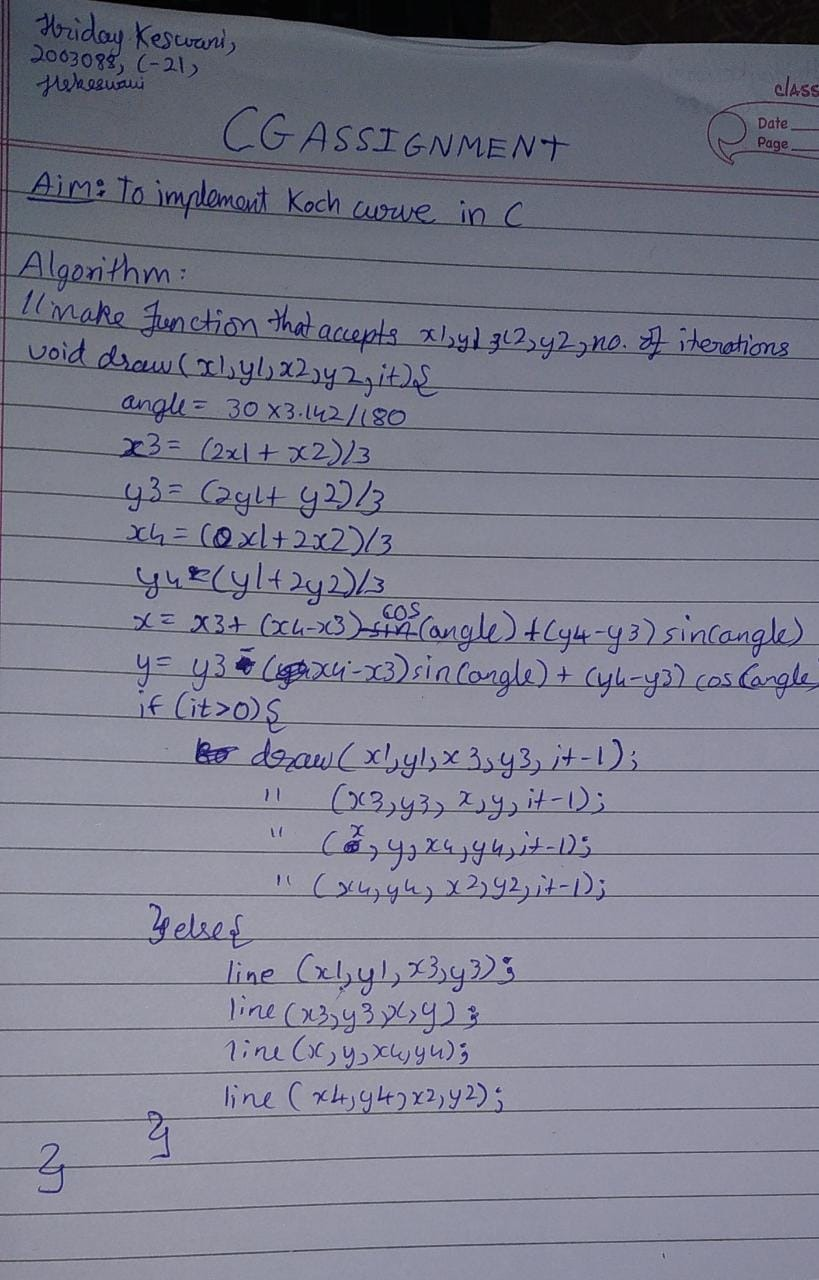 Hriday Keswani,
2003088, C-21,
Hskeswani
CLASS
Date
Page
CG ASSIGNMENT
Aim: To implement Koch curve in C
Algorithm:
//make function that accepts x1,y1 x2,y2, no. of iterations
void draw(x1,y1,x2,y2,it){
angle = 30×3.142/180
x3 = (2x1 + x2)/3
y3 = (2y1+ y2)/3
x4 = (x1+2x2)/3
y4 = (y1+2y2)/3
x = x3+ (x4-x3) cos(angle) +(y4-y3) sin(angle)
y = y3 - (x4-x3) sin(angle) + (y4-y3) cos(angle
if (it>0){
draw(x1,y1,x3,y3, it-1);
" (x3,y3, x,y, it-1);
" (x, y, x4,y4,it-1);
" (x4,y4, x2,y2,it-1);
}else{
line (x1,y1,x3,y3);
line(x3,y3,x,y);
line(x,y,x4,y4);
line (x4,y4,x2,y2);
}
}